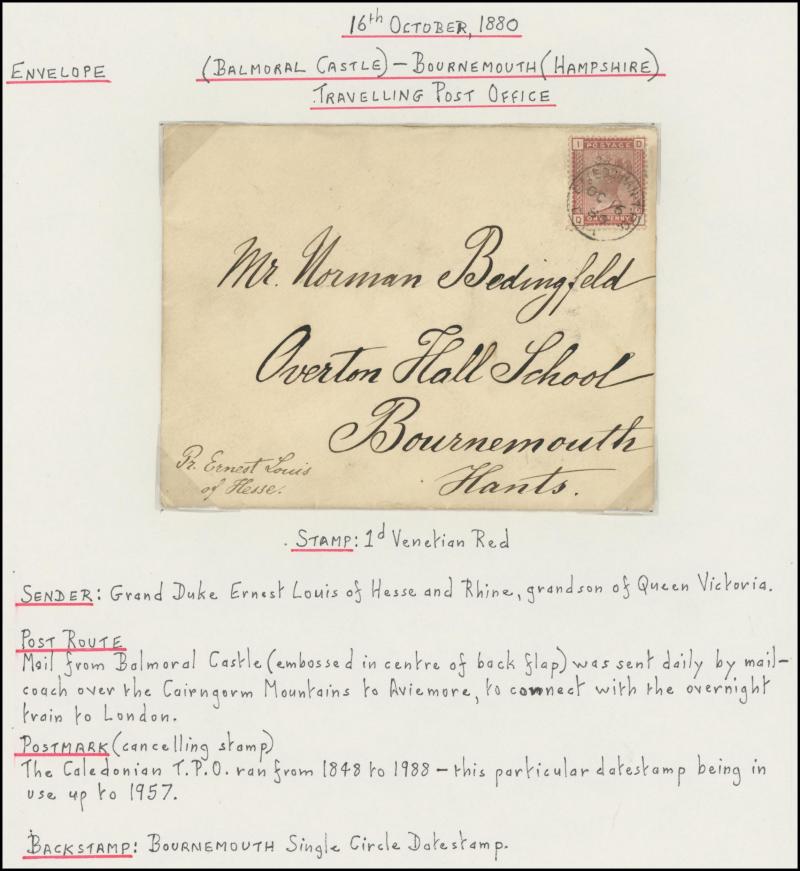 16th OCTOBER, 1880
ENVELOPE
(BALMORAL CASTLE) – BOURNEMOUTH (HAMPSHIRE)
TRAVELLING POST OFFICE
POSTAGE
ONE PENNY
Mr. Norman Bedingfeld
Overton Hall School
Bournemouth
Hants.
Pr. Ernest Louis
of Hesse.
STAMP: 1d Venetian Red
SENDER: Grand Duke Ernest Louis of Hesse and Rhine, grandson of Queen Victoria.
POST ROUTE
Mail from Balmoral Castle (embossed in centre of back flap) was sent daily by mail-
coach over the Cairngorm Mountains to Aviemore, to connect with the overnight
train to London.
POSTMARK (cancelling stamp)
The Caledonian T.P.O. ran from 1848 to 1988 – this particular datestamp being in
use up to 1957.
BACKSTAMP: BOURNEMOUTH Single Circle Datestamp.